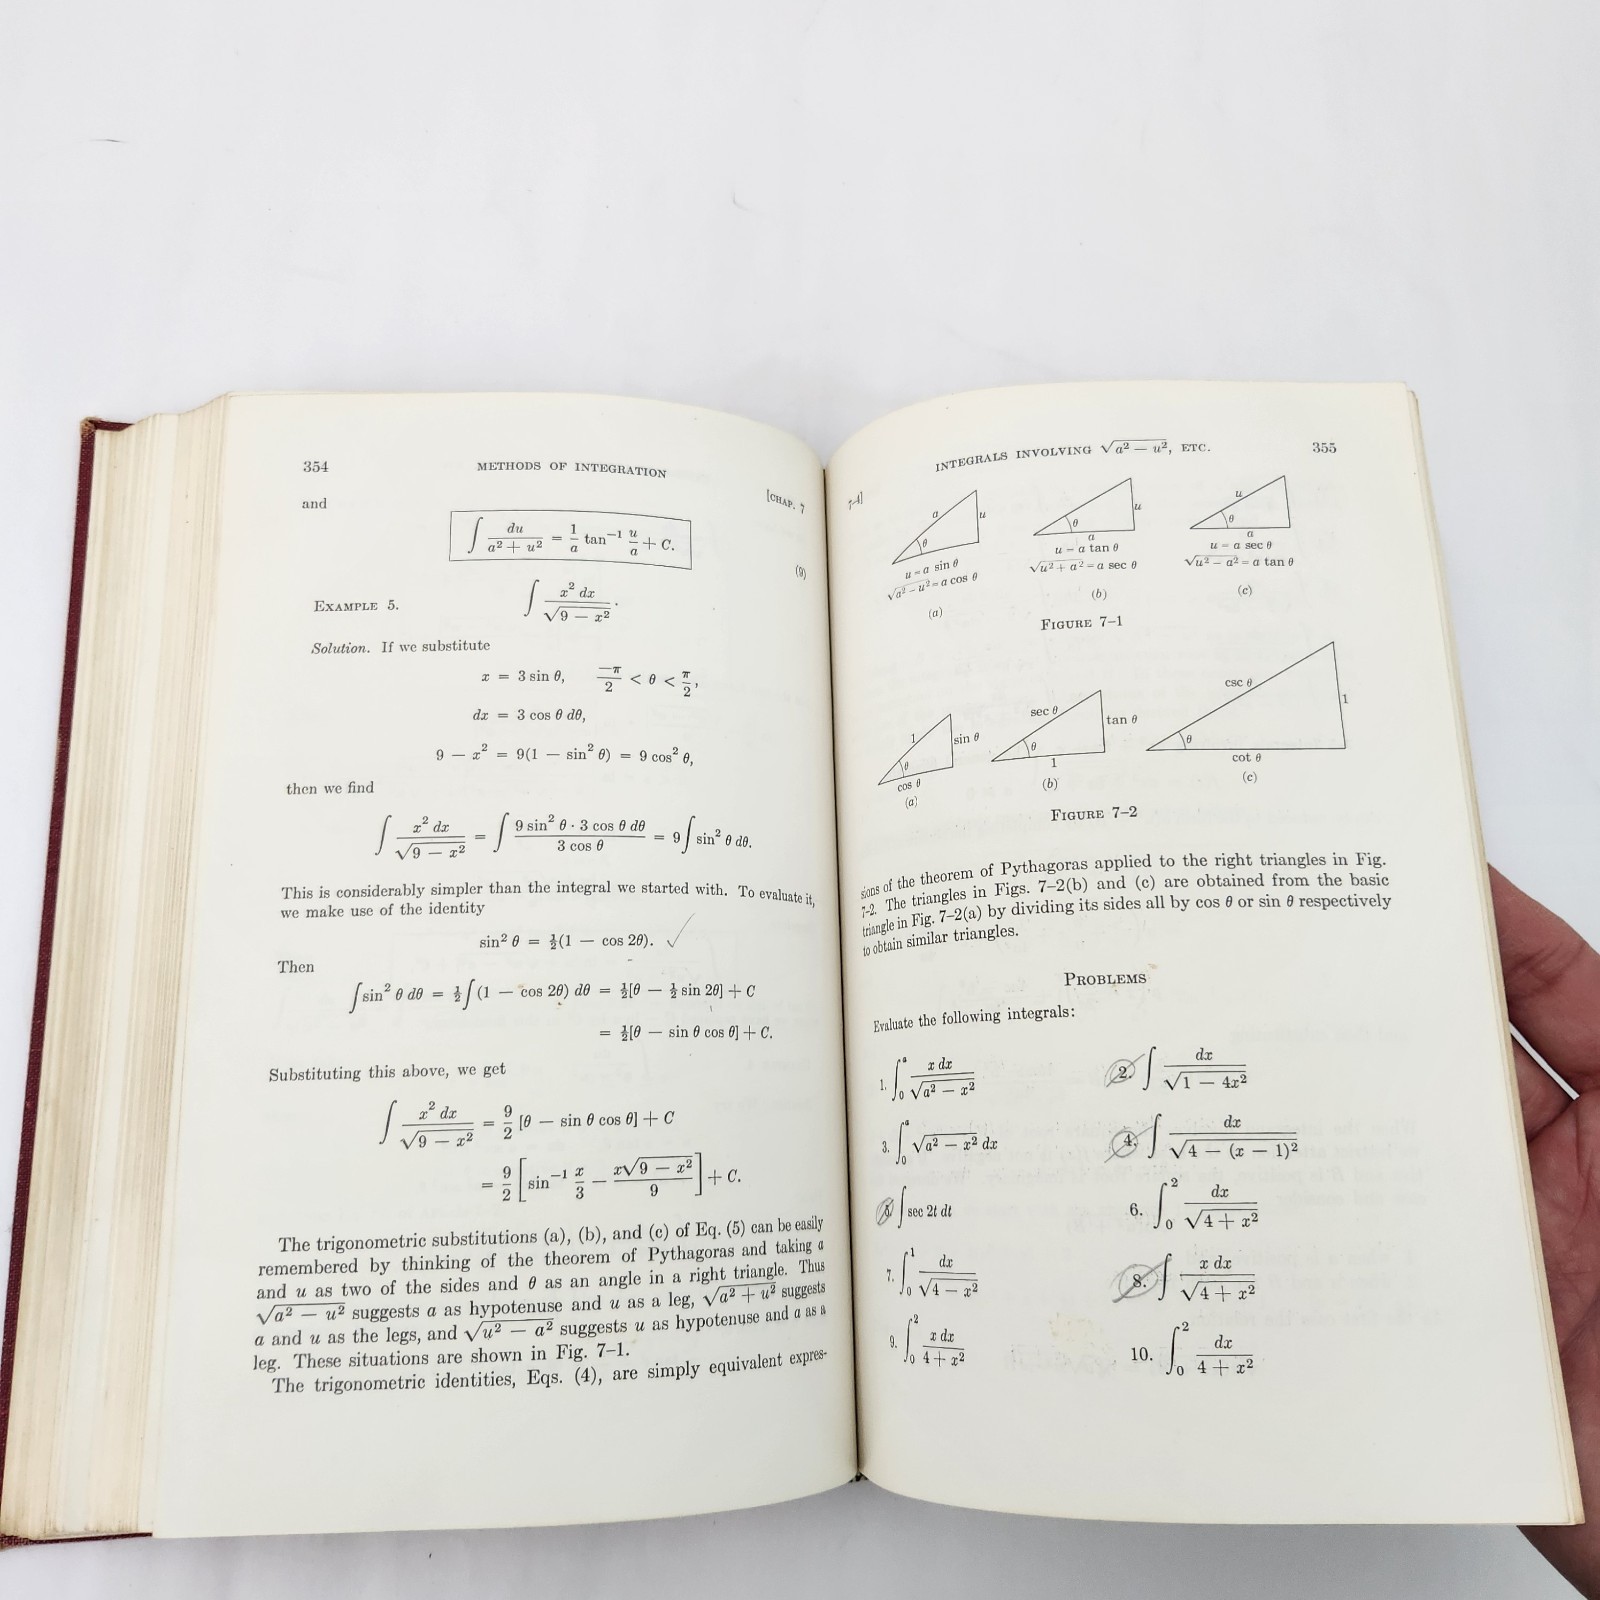 354
METHODS OF INTEGRATION
[CHAP. 7
and
∫ du/(a² + u²) = (1/a) tan⁻¹ (u/a) + C.
(9)
EXAMPLE 5. ∫ x² dx/√(9 − x²).
Solution. If we substitute
x = 3 sin θ, −π/2 < θ < π/2,
dx = 3 cos θ dθ,
9 − x² = 9(1 − sin² θ) = 9 cos² θ,
then we find
∫ x² dx/√(9 − x²) = ∫ (9 sin² θ · 3 cos θ dθ)/(3 cos θ) = 9 ∫ sin² θ dθ.
This is considerably simpler than the integral we started with. To evaluate it,
we make use of the identity
sin² θ = ½(1 − cos 2θ).
Then
∫ sin² θ dθ = ½ ∫ (1 − cos 2θ) dθ = ½[θ − ½ sin 2θ] + C
= ½[θ − sin θ cos θ] + C.
Substituting this above, we get
∫ x² dx/√(9 − x²) = 9/2 [θ − sin θ cos θ] + C
= 9/2 [sin⁻¹ x/3 − x√(9 − x²)/9] + C.
The trigonometric substitutions (a), (b), and (c) of Eq. (5) can be easily
remembered by thinking of the theorem of Pythagoras and taking a
and u as two of the sides and θ as an angle in a right triangle. Thus
√(a² − u²) suggests a as hypotenuse and u as a leg, √(a² + u²) suggests
a and u as the legs, and √(u² − a²) suggests u as hypotenuse and a as a
leg. These situations are shown in Fig. 7–1.
The trigonometric identities, Eqs. (4), are simply equivalent expres-
7–4]
INTEGRALS INVOLVING √(a² − u²), ETC.
355
a
u
θ
u = a sin θ
√(a² − u²) = a cos θ
(a)
u
θ
a
u = a tan θ
√(u² + a²) = a sec θ
(b)
u
θ
a
u = a sec θ
√(u² − a²) = a tan θ
(c)
FIGURE 7–1
1
sin θ
θ
cos θ
(a)
sec θ
tan θ
θ
1
(b)
csc θ
1
θ
cot θ
(c)
FIGURE 7–2
sions of the theorem of Pythagoras applied to the right triangles in Fig.
7–2. The triangles in Figs. 7–2(b) and (c) are obtained from the basic
triangle in Fig. 7–2(a) by dividing its sides all by cos θ or sin θ respectively
to obtain similar triangles.
PROBLEMS
Evaluate the following integrals:
1. ∫₀ᵃ x dx/√(a² − x²)
2. ∫ dx/√(1 − 4x²)
3. ∫₀ᵃ √(a² − x²) dx
4. ∫ dx/√(4 − (x − 1)²)
5. ∫ sec 2t dt
6. ∫₀² dx/√(4 + x²)
7. ∫₀¹ dx/√(4 − x²)
8. ∫ x dx/√(4 + x²)
9. ∫₀² x dx/(4 + x²)
10. ∫₀² dx/(4 + x²)